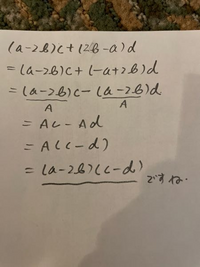 (a-2b)c+(2b-a)d
=(a-2b)c+(-a+2b)d
=(a-2b)c-(a-2b)d
A A
=Ac-Ad
=A(c-d)
=(a-2b)(c-d) ですね.